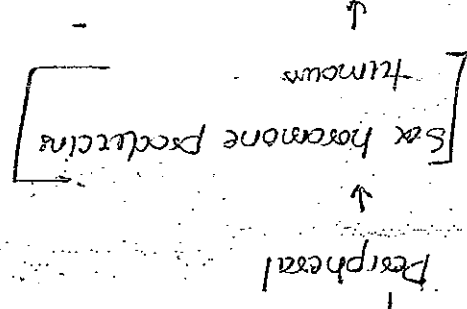 Peripheral
↓
[Sex horomone producing
tumours]
↓